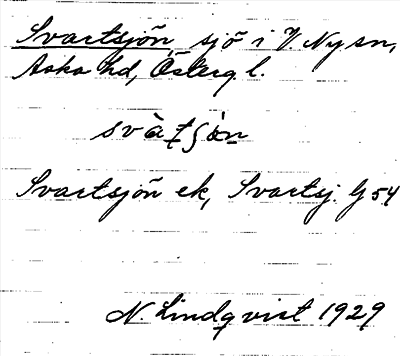 Svartsjön sjö i V. Ny sn,
Aska hd, Österg. l.
svàtʃön
Svartsjön ek, Svartsj. G 54
N. Lindqvist 1929